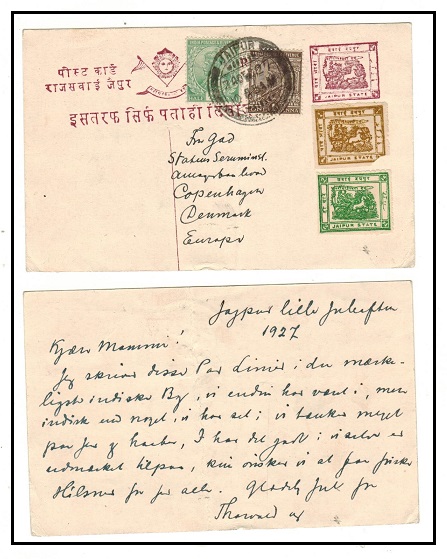 पोस्ट कार्ड
राजसवाई जैपुर
इसतरफ सिर्फ पताही
JAIPUR
JAIPUR STATE
JAIPUR STATE
JAIPUR STATE
Fru Gad
Statens Seruminst.
Amagerboulevard
Copenhagen
Denmark
Europe
Jajpur lille Juleaften
1927
Kjære Mammi!
Jeg skriver disse Par Linier i den mærke-
ligste indiske By, vi endnu har været i, mere
indisk end noget, vi har set; vi tænker meget
paa Jer og haaber, I har det godt; vi selv er
udmærket tilpas, kun ønsker vi at faa friske
Hilsner fra Jer alle. Glædelig Jul fra
Thorvald og